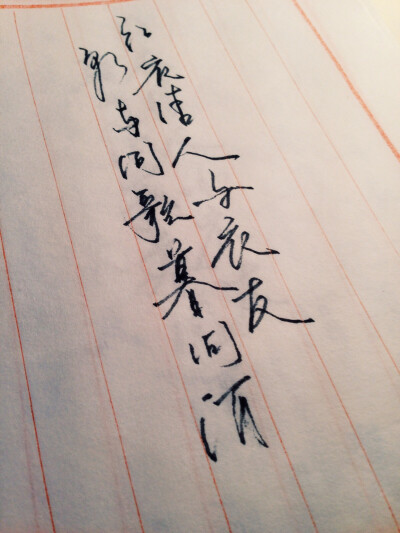 红衣佳人白衣友
朝与同歌暮同酒